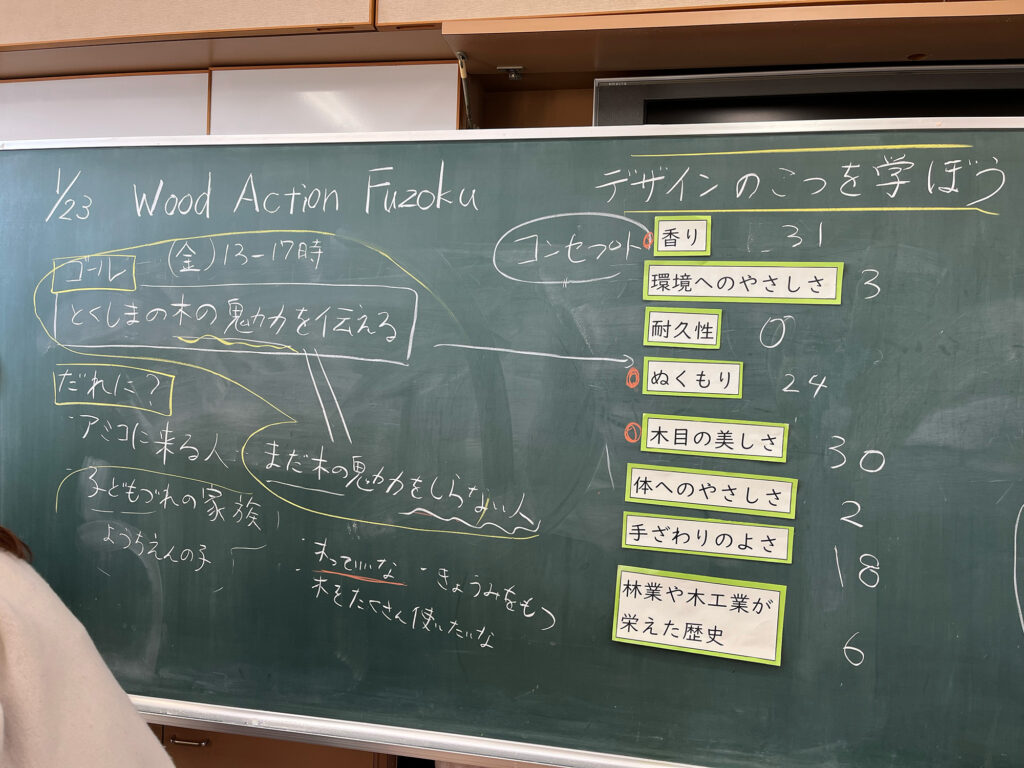 1/23 Wood Action Fuzoku
デザインのこつを学ぼう
(金)13-17時
ゴール
とくしまの木の魅力を伝える
だれに?
・アミコに来る人
・子どもづれの家族
ようちえんの子
まだ木の魅力をしらない人
・木っていいな
・きょうみをもつ
・木をたくさん使いたいな
コンセプト
香り 31
環境へのやさしさ 3
耐久性 0
ぬくもり 24
木目の美しさ 30
体へのやさしさ 2
手ざわりのよさ 18
林業や木工業が
栄えた歴史 6